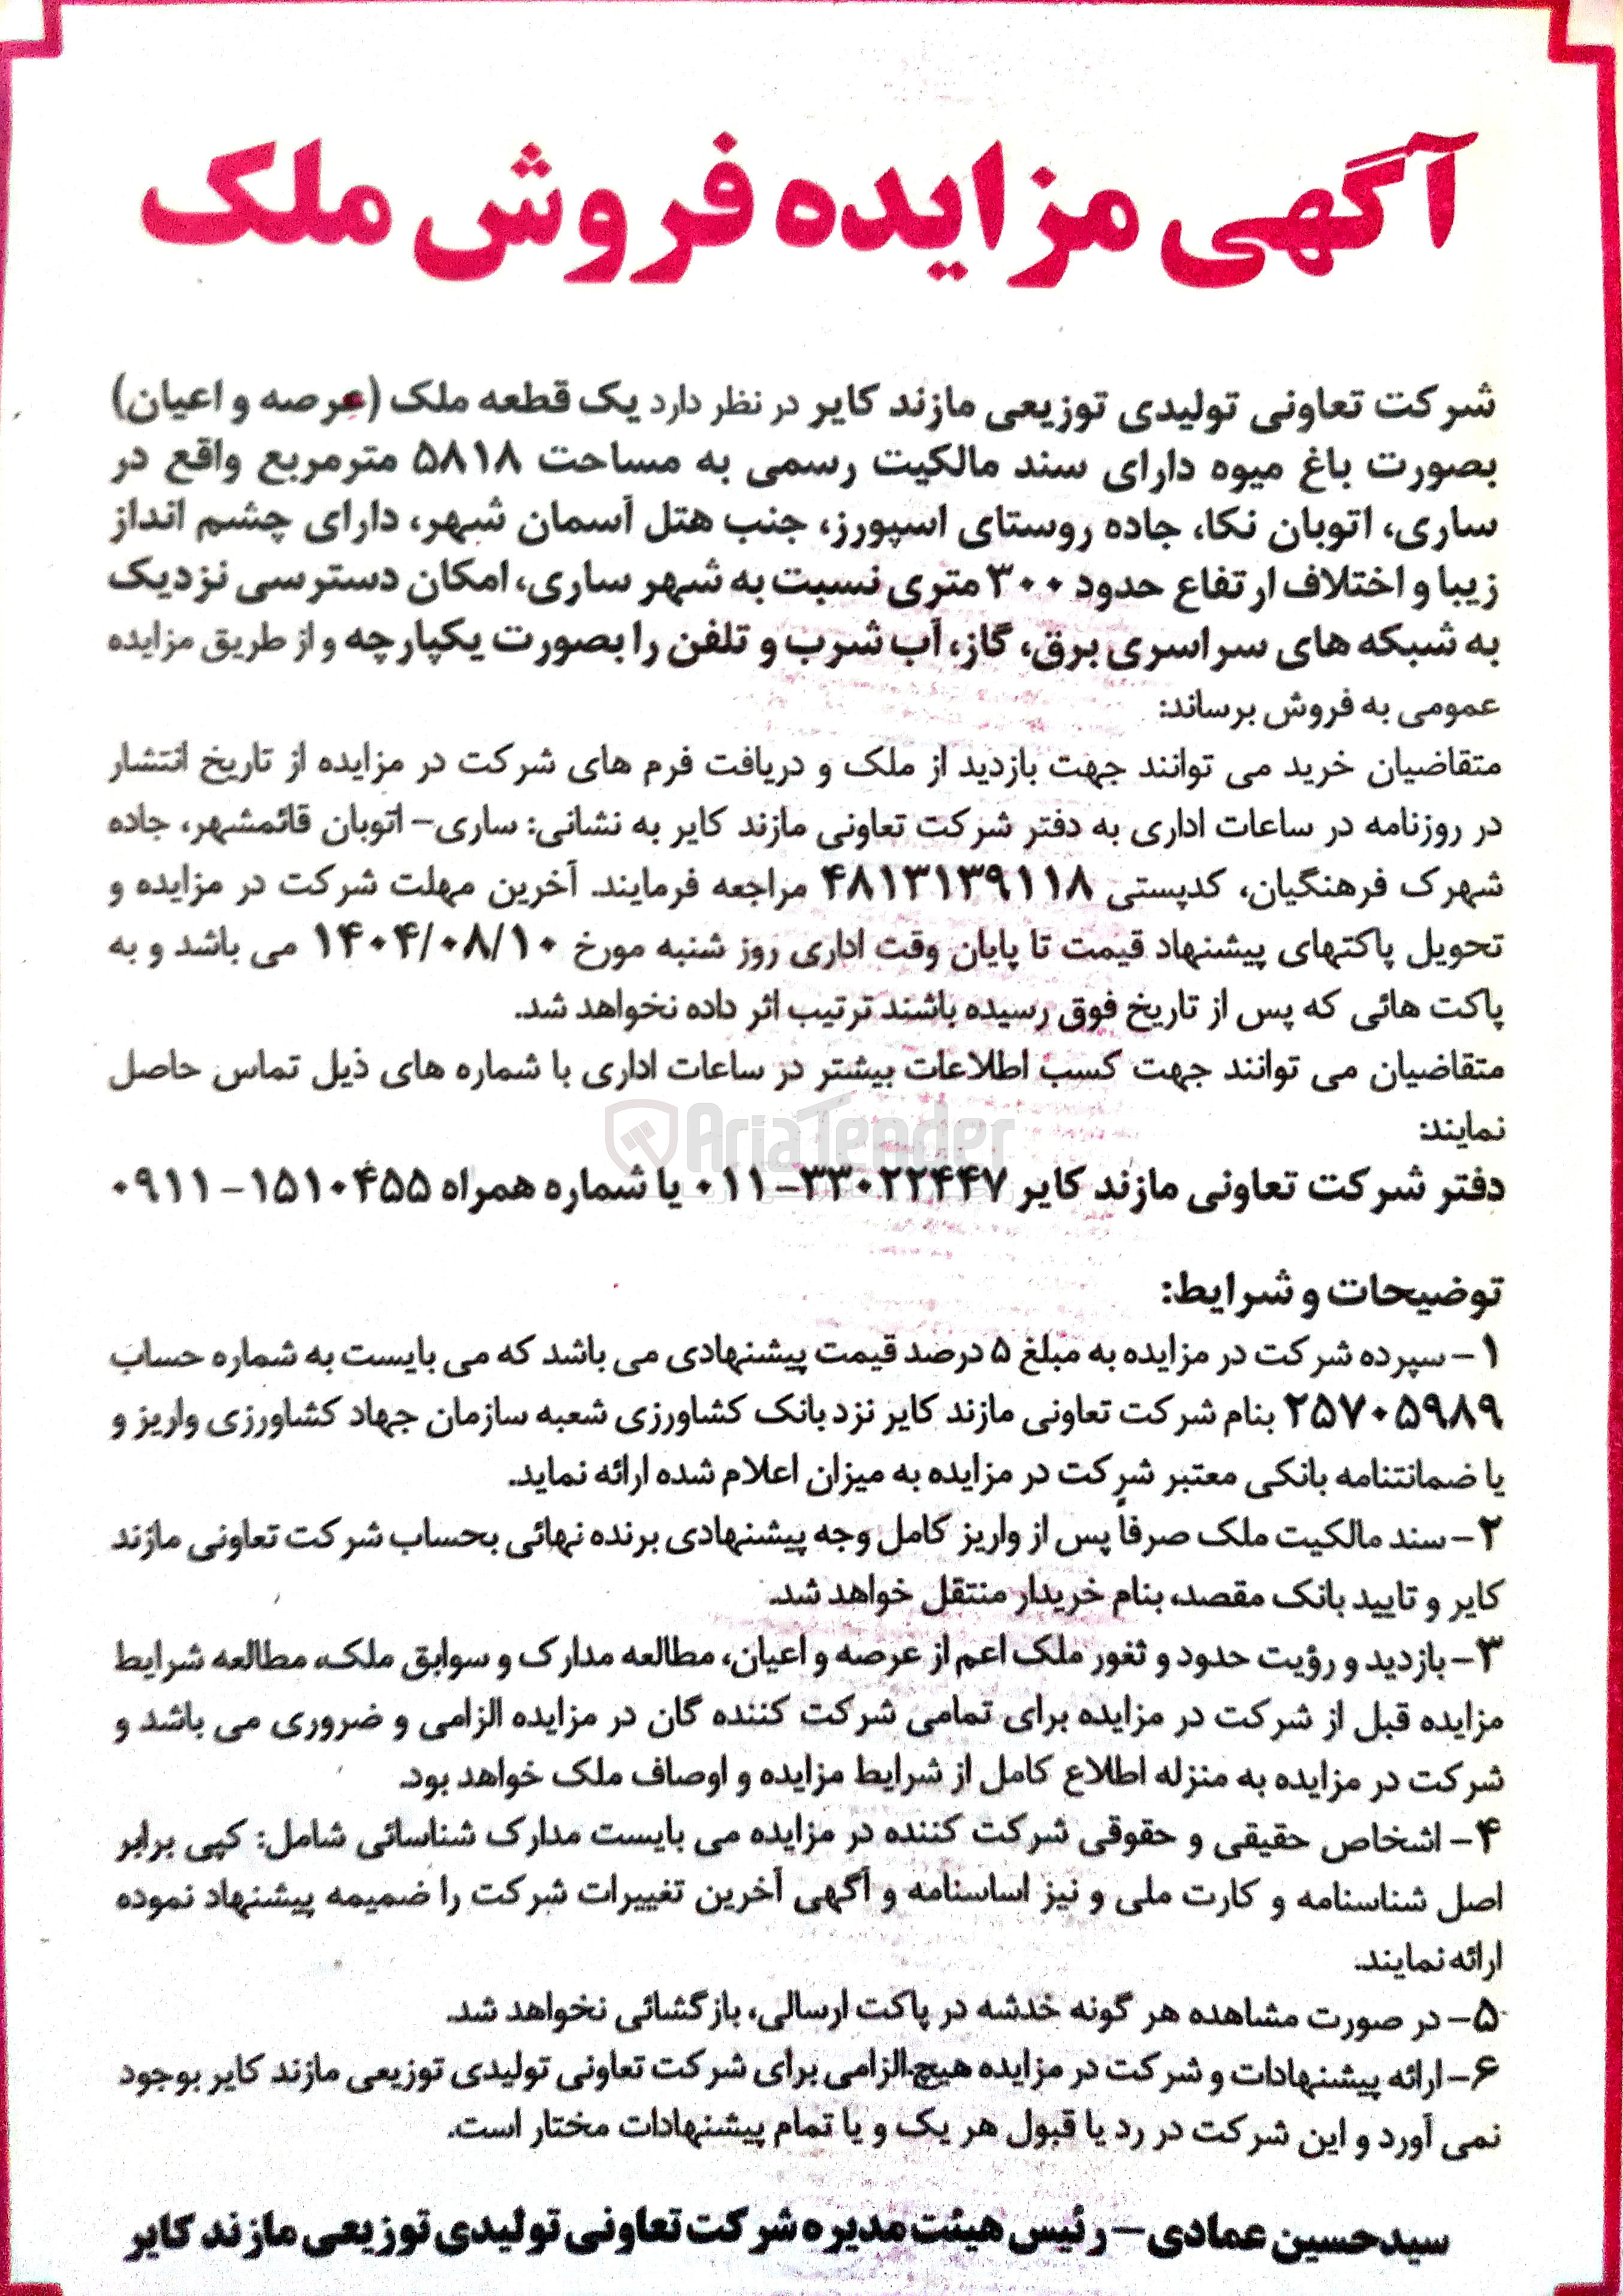 آگهی مزایده فروش ملک
شرکت تعاونی تولیدی توزیعی مازند کایر در نظر دارد یک قطعه ملک (عرصه و اعیان)
بصورت باغ میوه دارای سند مالکیت رسمی به مساحت ۵۸۱۸ مترمربع واقع در
ساری، اتوبان نکا، جاده روستای اسپورز، جنب هتل آسمان شهر، دارای چشم انداز
زیبا و اختلاف ارتفاع حدود ۳۰۰ متری نسبت به شهر ساری، امکان دسترسی نزدیک
به شبکه های سراسری برق، گاز، آب شرب و تلفن را بصورت یکپارچه و از طریق مزایده
عمومی به فروش برساند:
متقاضیان خرید می توانند جهت بازدید از ملک و دریافت فرم های شرکت در مزایده از تاریخ انتشار
در روزنامه در ساعات اداری به دفتر شرکت تعاونی مازند کایر به نشانی: ساری- اتوبان قائمشهر، جاده
شهرک فرهنگیان، کدپستی ۴۸۱۳۱۳۹۱۱۸ مراجعه فرمایند. آخرین مهلت شرکت در مزایده و
تحویل پاکتهای پیشنهاد قیمت تا پایان وقت اداری روز شنبه مورخ ۱۴۰۴/۰۸/۱۰ می باشد و به
پاکت هائی که پس از تاریخ فوق رسیده باشند ترتیب اثر داده نخواهد شد.
متقاضیان می توانند جهت کسب اطلاعات بیشتر در ساعات اداری با شماره های ذیل تماس حاصل
نمایند:
AriaTender
دفتر شرکت تعاونی مازند کایر ۳۳۰۲۲۴۴۷-۰۱۱ یا شماره همراه ۱۵۱۰۴۵۵-۰۹۱۱
توضیحات و شرایط:
۱- سپرده شرکت در مزایده به مبلغ ۵ درصد قیمت پیشنهادی می باشد که می بایست به شماره حساب
۲۵۷۰۵۹۸۹ بنام شرکت تعاونی مازند کایر نزد بانک کشاورزی شعبه سازمان جهاد کشاورزی واریز و
یا ضمانتنامه بانکی معتبر شرکت در مزایده به میزان اعلام شده ارائه نماید.
۲- سند مالکیت ملک صرفاً پس از واریز کامل وجه پیشنهادی برنده نهائی بحساب شرکت تعاونی مازند
کایر و تایید بانک مقصد، بنام خریدار منتقل خواهد شد.
۳- بازدید و رؤیت حدود و ثغور ملک اعم از عرصه و اعیان، مطالعه مدارک و سوابق ملک، مطالعه شرایط
مزایده قبل از شرکت در مزایده برای تمامی شرکت کننده گان در مزایده الزامی و ضروری می باشد و
شرکت در مزایده به منزله اطلاع کامل از شرایط مزایده و اوصاف ملک خواهد بود.
۴- اشخاص حقیقی و حقوقی شرکت کننده در مزایده می بایست مدارک شناسائی شامل: کپی برابر
اصل شناسنامه و کارت ملی و نیز اساسنامه و آگهی آخرین تغییرات شرکت را ضمیمه پیشنهاد نموده
ارائه نمایند.
۵- در صورت مشاهده هر گونه خدشه در پاکت ارسالی، بازگشائی نخواهد شد.
۶- ارائه پیشنهادات و شرکت در مزایده هیچ الزامی برای شرکت تعاونی تولیدی توزیعی مازند کایر بوجود
نمی آورد و این شرکت در رد یا قبول هر یک و یا تمام پیشنهادات مختار است.
سیدحسین عمادی- رئیس هیئت مدیره شرکت تعاونی تولیدی توزیعی مازند کایر